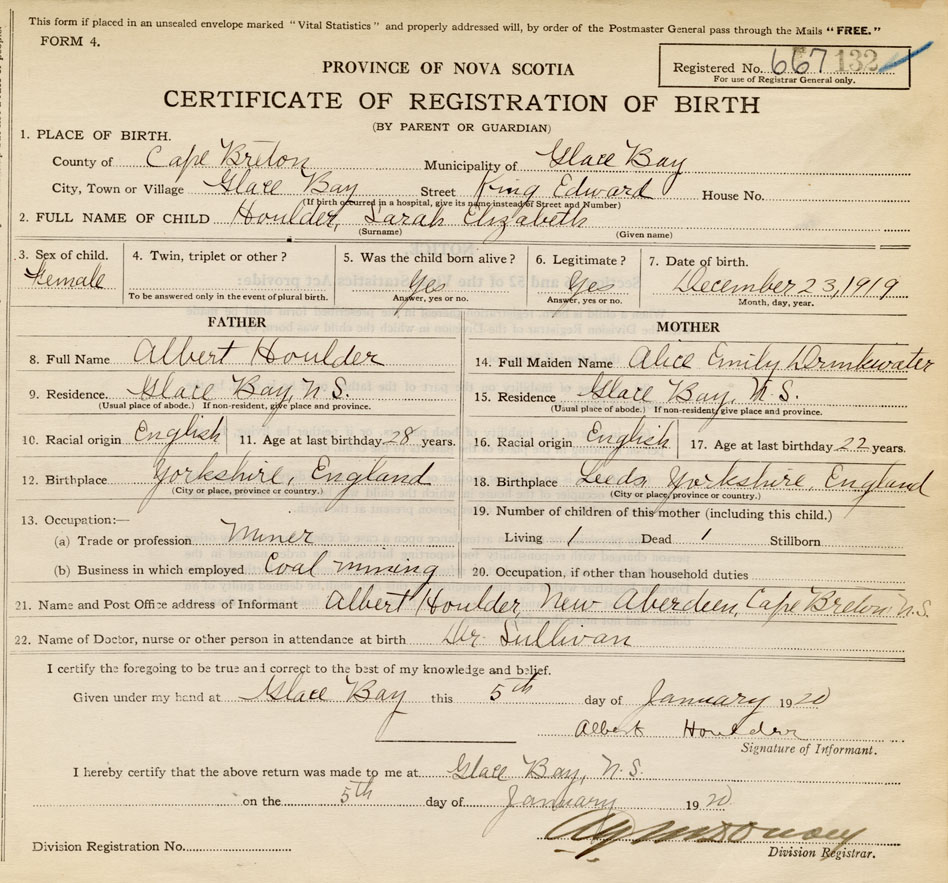 This form if placed in an unsealed envelope marked "Vital Statistics" and properly addressed will, by order of the Postmaster General pass through the Mails "FREE."
FORM 4.
Registered No. 667 132
For use of Registrar General only.
PROVINCE OF NOVA SCOTIA
CERTIFICATE OF REGISTRATION OF BIRTH
(BY PARENT OR GUARDIAN)
1. PLACE OF BIRTH.
County of Cape Breton Municipality of Glace Bay
City, Town or Village Glace Bay Street King Edward House No.
(If birth occurred in a hospital, give its name instead of Street and Number)
2. FULL NAME OF CHILD Houlder, Sarah Elizabeth
(Surname) (Given name)
3. Sex of child. Female
4. Twin, triplet or other?
To be answered only in the event of plural birth.
5. Was the child born alive? Yes
Answer, yes or no.
6. Legitimate? Yes
Answer, yes or no.
7. Date of birth. December 23, 1919
Month, day, year.
FATHER
8. Full Name Albert Houlder
9. Residence. Glace Bay, N.S.
(Usual place of abode.) If non-resident, give place and province.
10. Racial origin English 11. Age at last birthday 28 years.
12. Birthplace Yorkshire, England
(City or place, province or country.)
13. Occupation:—
(a) Trade or profession Miner
(b) Business in which employed Coal mining
MOTHER
14. Full Maiden Name Alice Emily Drinkwater
15. Residence Glace Bay, N.S.
(Usual place of abode.) If non-resident, give place and province.
16. Racial origin English 17. Age at last birthday 22 years.
18. Birthplace Leeds Yorkshire, England
(City or place, province or country.)
19. Number of children of this mother (including this child.)
Living 1 Dead 1 Stillborn
20. Occupation, if other than household duties
21. Name and Post Office address of Informant Albert Houlder, New Aberdeen, Cape Breton N.S.
22. Name of Doctor, nurse or other person in attendance at birth Dr. Sullivan
I certify the foregoing to be true and correct to the best of my knowledge and belief.
Given under my hand at Glace Bay this 5th day of January 1920
Albert Houlder
Signature of Informant.
I hereby certify that the above return was made to me at Glace Bay, N.S.
on the 5th day of January 1920
Division Registration No.
Division Registrar.